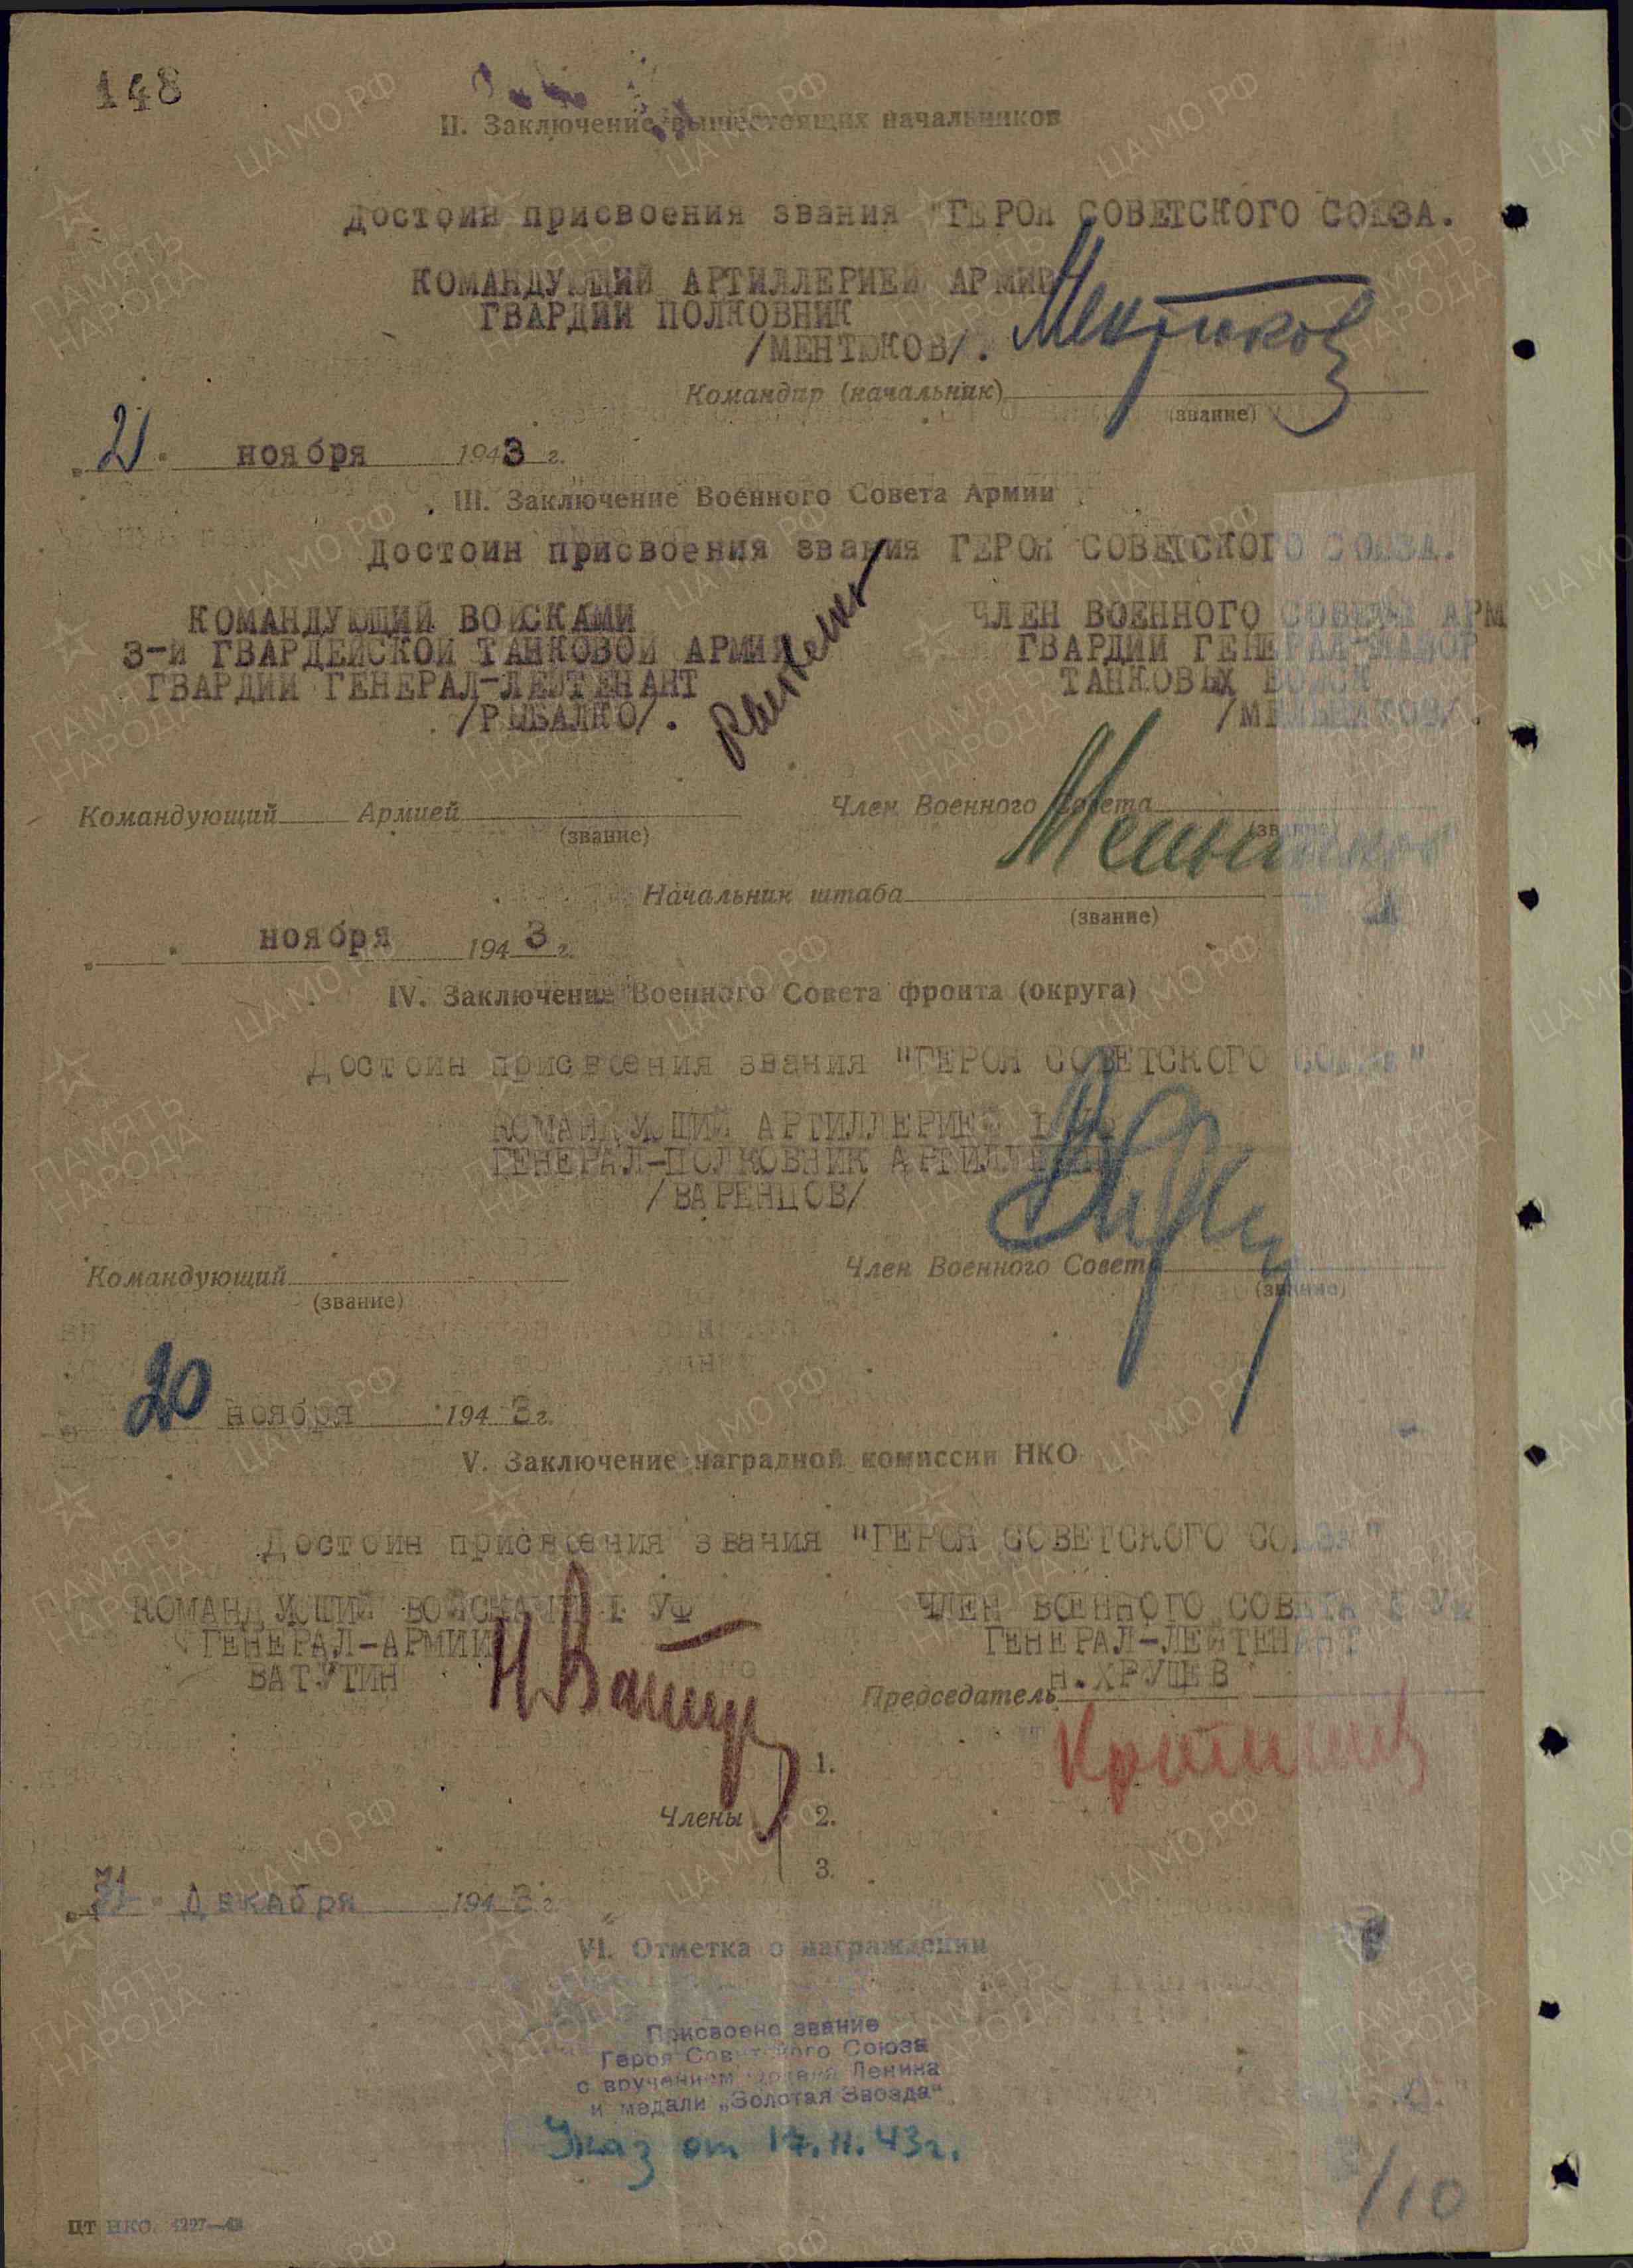 148
II. Заключение вышестоящих начальников
Достоин присвоения звания "ГЕРОЯ СОВЕТСКОГО СОЮЗА.
КОМАНДУЮЩИЙ АРТИЛЛЕРИЕЙ АРМИИ
ГВАРДИИ ПОЛКОВНИК
/МЕНТЮКОВ/.
Ментюков
Командир (начальник)
(звание)
21 ноября 1943 г.
III. Заключение Военного Совета Армии
Достоин присвоения звания ГЕРОЯ СОВЕТСКОГО СОЮЗА.
КОМАНДУЮЩИЙ ВОЙСКАМИ ЧЛЕН ВОЕННОГО СОВЕТА АРМ
3-Й ГВАРДЕЙСКОЙ ТАНКОВОЙ АРМИИ ГВАРДИИ ГЕНЕРАЛ-МАЙОР
ГВАРДИИ ГЕНЕРАЛ-ЛЕЙТЕНАНТ ТАНКОВЫХ ВОЙСК
/РЫБАЛКО/. /МЕЛЬНИКОВ/.
Командующий Армией Член Военного Совета
(звание) (звание)
Мельников
Начальник штаба
(звание)
" " ноября 1943 г.
IV. Заключение Военного Совета фронта (округа)
Достоин присвоения звания "ГЕРОЯ СОВЕТСКОГО СОЮЗА"
КОМАНДУЮЩИЙ АРТИЛЛЕРИЕЙ I УФ
ГЕНЕРАЛ-ПОЛКОВНИК АРТИЛЛЕРИИ
/ВАРЕНЦОВ/
Командующий Член Военного Совета
(звание) (звание)
20 ноября 1943 г.
V. Заключение наградной комиссии НКО
Достоин присвоения звания "ГЕРОЯ СОВЕТСКОГО СОЮЗА"
КОМАНДУЮЩИЙ ВОЙСКАМИ I УФ ЧЛЕН ВОЕННОГО СОВЕТА I УФ
ГЕНЕРАЛ-АРМИИ ГЕНЕРАЛ-ЛЕЙТЕНАНТ
ВАТУТИН Н.ХРУЩЕВ
Н. Ватутин
Председатель
1.
Члены 2.
3.
31 Декабря 1943 г.
VI. Отметка о награждении
Присвоено звание
Героя Советского Союза
с вручением ордена Ленина
и медали „Золотая Звезда"
Указ от 17.11.43г.
/10
ЦТ НКО. 4227—43
ПАМЯТЬ НАРОДА
ЦА МО РФ